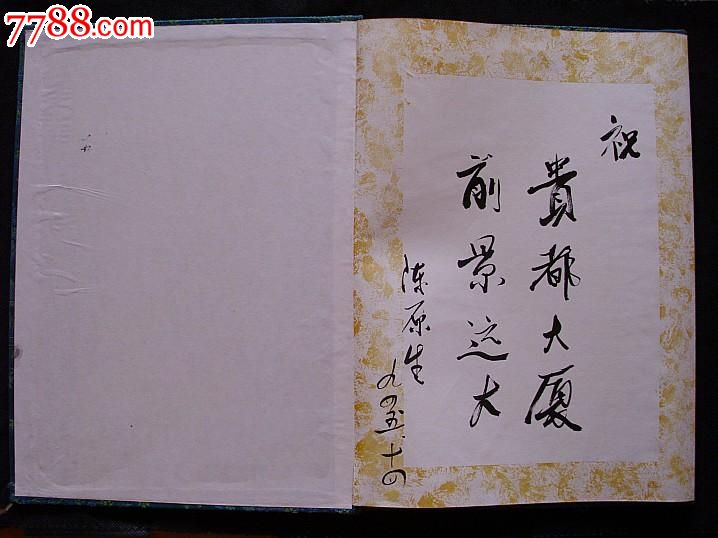 7788.com
祝
貴都大厦
前景远大
陈原生
九四五.十四